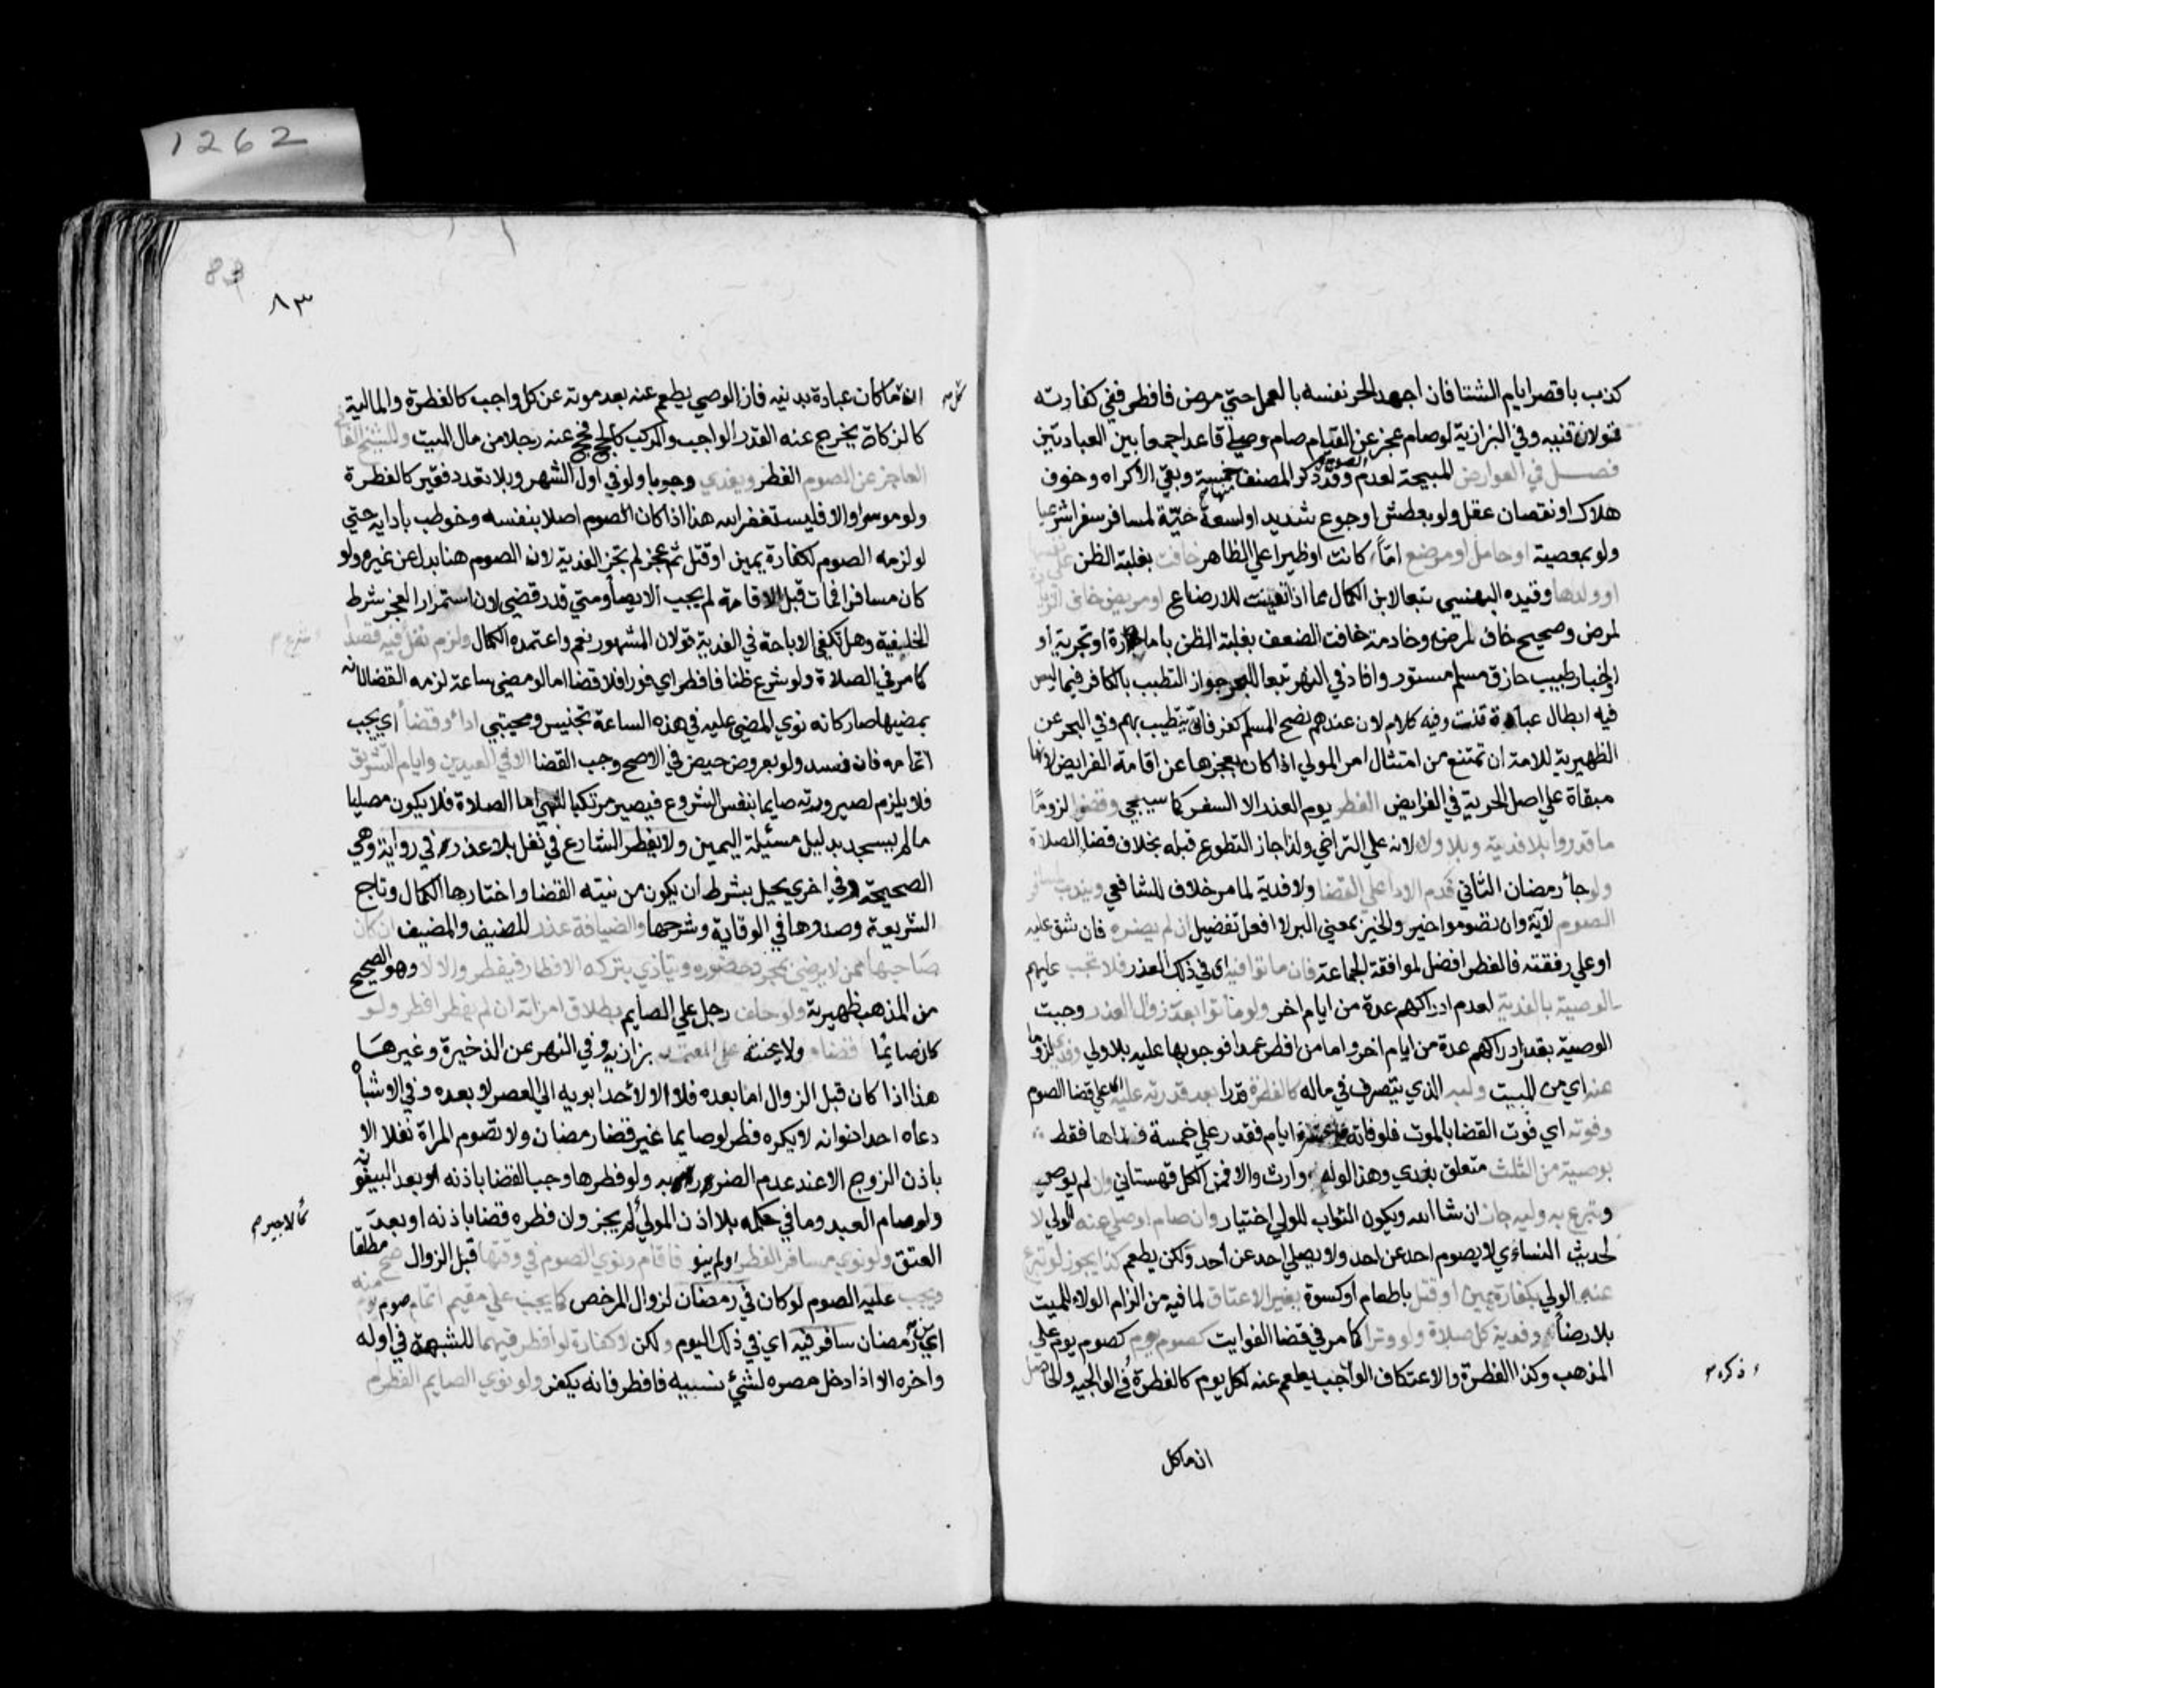 كذب باقصر ايام الشتا فان اجهد الحر نفسه بالعمل حتي مرض فافطر ففي كفارته
قولان قنيه وفي البزازية لو صام عجز عن القيام صام وصلي قاعدا جمعا بين العبادتين
فصل في العوارض المبيحة لعدم الصوم وقد ذكر المصنف منها خمسة وبقي الاكراه وخوف
هلاك او نقصان عقل ولو بعطش او جوع شديد او لسعة حية لمسافر سفرا شرعيا
ولو بمعصية او حامل او مرضع اما كانت او ظيرا علي الظاهر خافت بغلبة الظن علي نفسها
او ولدها وقيده البهنسي تبعا لابن الكمال بما اذا تعينت للارضاع او مريض خاف الزيادة
لمرض وصحيح خاف المرض وخادمة خافت الضعف بغلبة الظن بامارة او تجربة او
اخبار طبيب حاذق مسلم مستور وافاد في النهر تبعا للبحر جواز التطبب بالكافر فيما ليس
فيه ابطال عبادة قلت وفيه كلام لان عندهم نصح المسلم كفر فاني يتطبب بهم وفي البحر عن
الظهيرية للامة ان تمتنع من امتثال امر المولي اذا كان يعجزها عن اقامة الفرايض لانها
مبقاة علي اصل الحرية في الفرايض الفطر يوم العذر الا السفر كما سيجي وقضوا لزوما
ما قدروا بلا فدية وبلا ولاء لانه علي التراخي ولذا جاز التطوع قبله بخلاف قضا الصلاة
ولو جا رمضان الثاني قدم الاداء علي القضا ولا فدية لما مر خلاف للشافعي ويندب لمسافر
الصوم لاية وان تصوموا خير والخير بمعني البر لا افعل تفضيل ان لم يضره فان شق عليه
او علي رفقته فالفطر افضل لموافقة الجماعة فان ماتوا فيه اي في ذلك العذر فلا تجب عليهم
الوصية بالفدية لعدم ادراكهم عدة من ايام اخر ولو ماتوا بعد زوال العذر وجبت
الوصية بقدر ادراكهم عدة من ايام اخر واما من افطر عمدا فوجوبها عليه بالاولي وفدي لزوما
عنه اي من الميت وليه الذي يتصرف في ماله كالفطرة قدرا بعد قدرته عليه اي علي قضا الصوم
وفوته اي فوت القضا بالموت فلو فاته عشرة ايام فقدر علي خمسة فداها فقط
بوصيته من الثلث متعلق بفدي وهذا لو له وارث والا فمن الكل قهستاني وان لم يوص
وتبرع به وليه جاز ان شا الله ويكون الثواب للولي اختيار وان صام او صلي عنه الولي لا
لحديث النساءي لا يصوم احد عن احد ولا يصلي احد عن احد ولكن يطعم كذا يجوز لو تبرع
عنه الولي بكفارة يمين او قتل باطعام او كسوة بغير الاعتاق لما فيه من الزام الولاء للميت
بلا رضاه وفدية كل صلاة ولو وترا كما مر في قضا الفوايت كصوم يوم كصوم يوم علي
المذهب وكذا الفطرة والاعتكاف الواجب يطعم عنه لكل يوم كالفطرة في الوالجية والحاصل
ذكره
ان ما كل
83
٨٣
ان ما كان عبادة بدنيه فان الوصي يطعم عنه بعد موته عن كل واجب كالفطرة والمالية
كالزكاة يخرج عنه القدر الواجب والمركب كالحج فحج عنه رجلا من مال الميت وللشيخ الفاني
العاجز عن الصوم الفطر ويفدي وجوبا ولو في اول الشهر وبلا تعدد فقير كالفطرة
ولو موسرا والا فليستغفر الله هذا اذا كان الصوم اصلا بنفسه وخوطب بادايه حتي
لو لزمه الصوم لكفارة يمين او قتل ثم عجز لم تجز الفدية لان الصوم هنا بدل عن غيره ولو
كان مسافرا فمات قبل الاقامة لم يجب الايصا ومتي قدر قضي لان استمرار العجز شرط
الخليفية وهل تكفي الاباحة في الفدية قولان المشهور نعم واعتمده الكمال ولزم نفل فيه قصدا
كما مر في الصلاة ولو شرع ظنا فافطر اي فورا فلا قضا اما لو مضي ساعة لزمه القضا لانه
بمضيها صار كانه نوي المضي عليه في هذه الساعة تجنيس ومجتبي اداء وقضا اي يجب
اتمامه فان فسد ولو بعروض حيض في الاصح وجب القضا الا في العيدين وايام التشريق
فلا يلزم لصيرورته صايما بنفس الشروع فيصير مرتكبا للنهي اما الصلاة فلا يكون مصليا
ما لم يسجد بدليل مسئيلة اليمين ولا يفطر الشارع في نفل بلا عذر في رواية وهي
الصحيحة وفي اخري يحل بشرط ان يكون من نيته القضا واختارها الكمال وتاج
الشريعة وصدرها في الوقاية وشرحها والضيافة عذر للضيف والمضيف ان كان
صاحبها ممن لا يرضي بمجرد حضوره ويتاذي بتركه الافطار فيفطر والا لا وهو الصحيح
من المذهب ظهيرية ولو حلف رجل علي الصايم بطلاق امراته ان لم يفطر افطر ولو
كان صايما قضاء ولا يحنثه علي المعتمد بزازيه وفي النهر عن الذخيرة وغيرها
هذا اذا كان قبل الزوال اما بعده فلا الا لاحد ابويه الي العصر لا بعده وفي الاشباه
دعاه احد اخوانه لا يكره فطر لو صايما غير قضا رمضان ولا تصوم المراة نفلا الا
باذن الزوج الا عند عدم الضرر به ولو فطرها وجب القضا باذنه او بعد البينونه
ولو صام العبد وما في حكمه بلا اذن المولي لم يجز وان فطره قضا باذنه او بعد
كالاجير
العتق ولو نوي مسافر الفطر او لم ينو فاقام ونوي الصوم في وقتها قبل الزوال صح مطلقا
ويجب عليه الصوم لو كان في رمضان لزوال المرخص كما يجب علي مقيم اتمام صوم يوم منه
اي رمضان سافر فيه اي في ذلك اليوم ولكن لا كفارة لو افطر فيهما للشبهة في اوله
واخره الا اذا دخل مصره لشئ نسيه فافطر فانه يكفر ولو نوي الصايم الفطر لم
1262